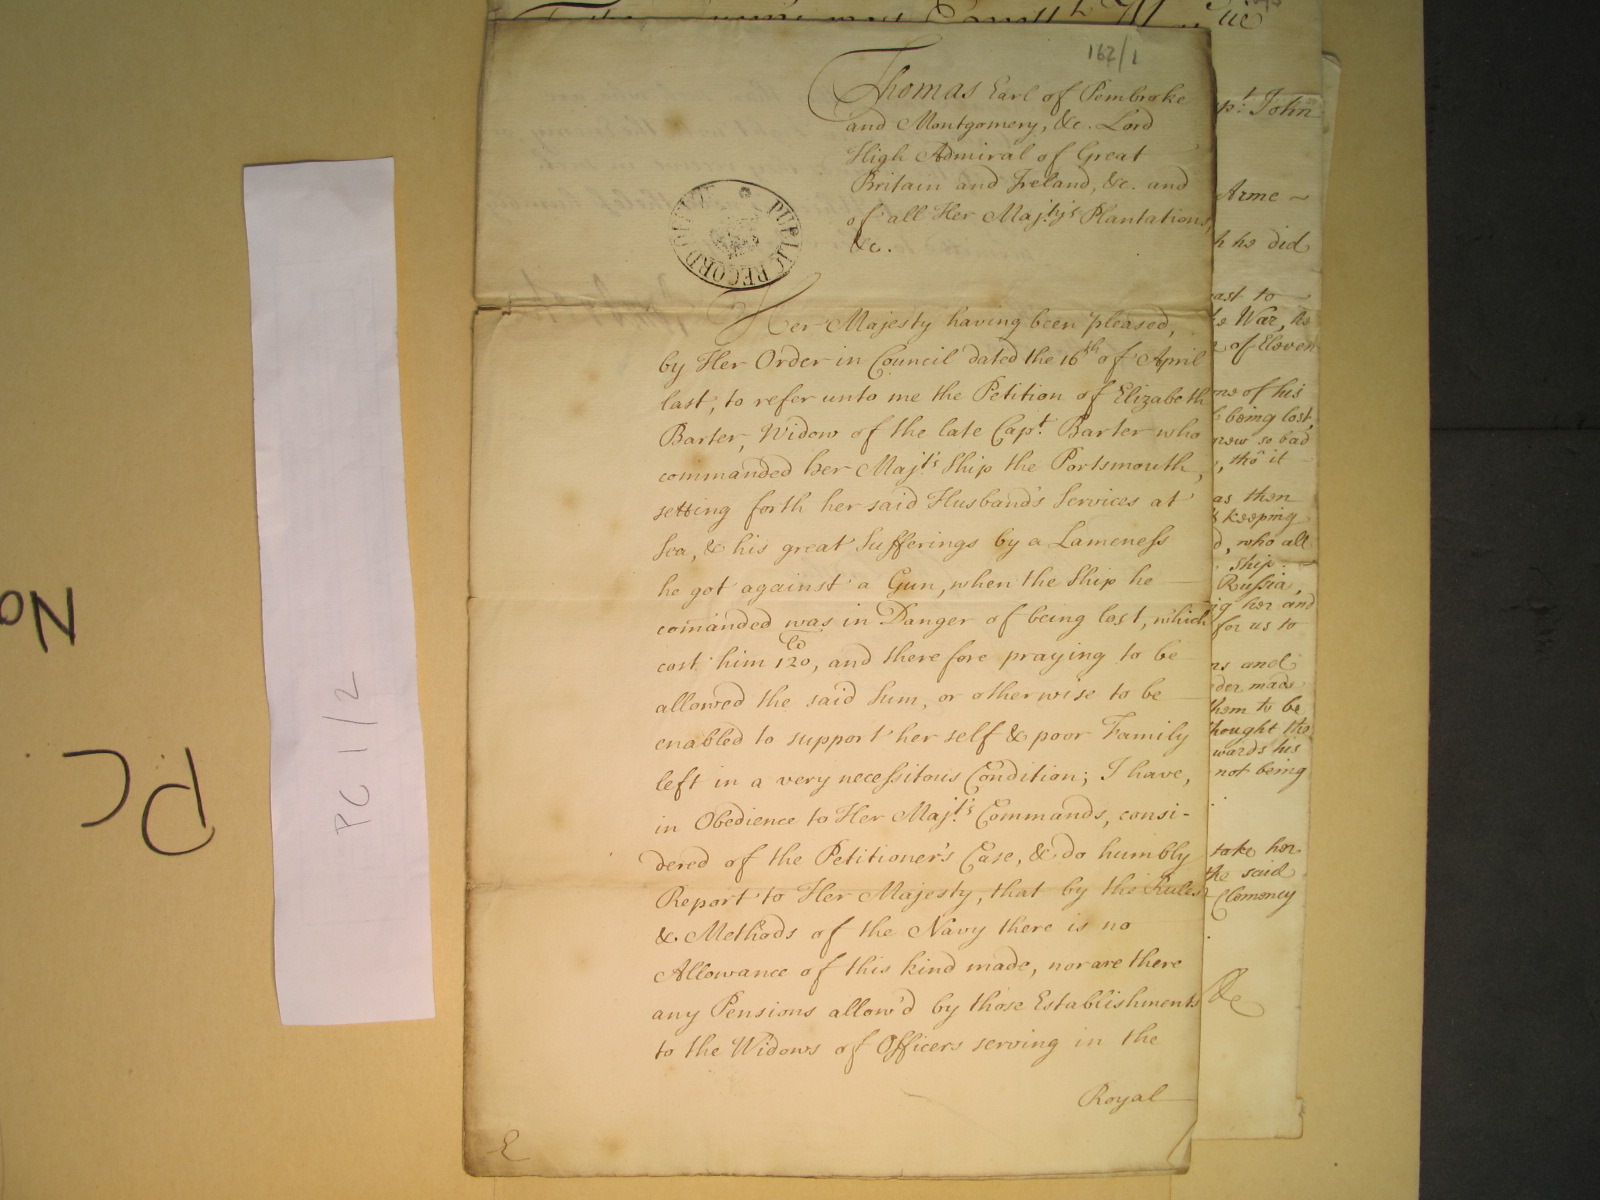 162/1
Thomas Earl of Pembroke
and Montgomery, &c. Lord
High Admiral of Great
Britain and Ireland, &c. and
of all Her Maj:ty's Plantations,
&c.
PUBLIC RECORD OFFICE
Her Majesty having been pleased,
by Her Order in Council dated the 16th of April
last, to refer unto me the Petition of Elizabeth
Barter, Widow of the late Capt. Barter who
commanded her Maj:ts Ship the Portsmouth,
setting forth her said Husband's Services at
Sea, & his great Sufferings by a Lameness
he got against a Gun, when the Ship he
comanded was in Danger of being lost, which
cost him £120, and therefore praying to be
allowed the said Sum, or otherwise to be
enabled to support her self & poor Family
left in a very necessitous Condition; I have,
in Obedience to Her Maj:t's Commands, consi-
dered of the Petitioner's Case, & do humbly
Report to Her Majesty, that by the Rules
& Methods of the Navy there is no
Allowance of this kind made, nor are there
any Pensions allow'd by those Establishments
to the Widows of Officers serving in the
Royal
pt: John
Arme
h he did
ast to
War, he
of Eleven
me of his
being lost,
new so bad
, tho' it
as then
keeping
d, who all
Ship
Russia,
her and
for us to
ns and
der made
them to be
thought the
wards his
not being
take her
the said
Clemency
&c
PC 1/2
No
PC